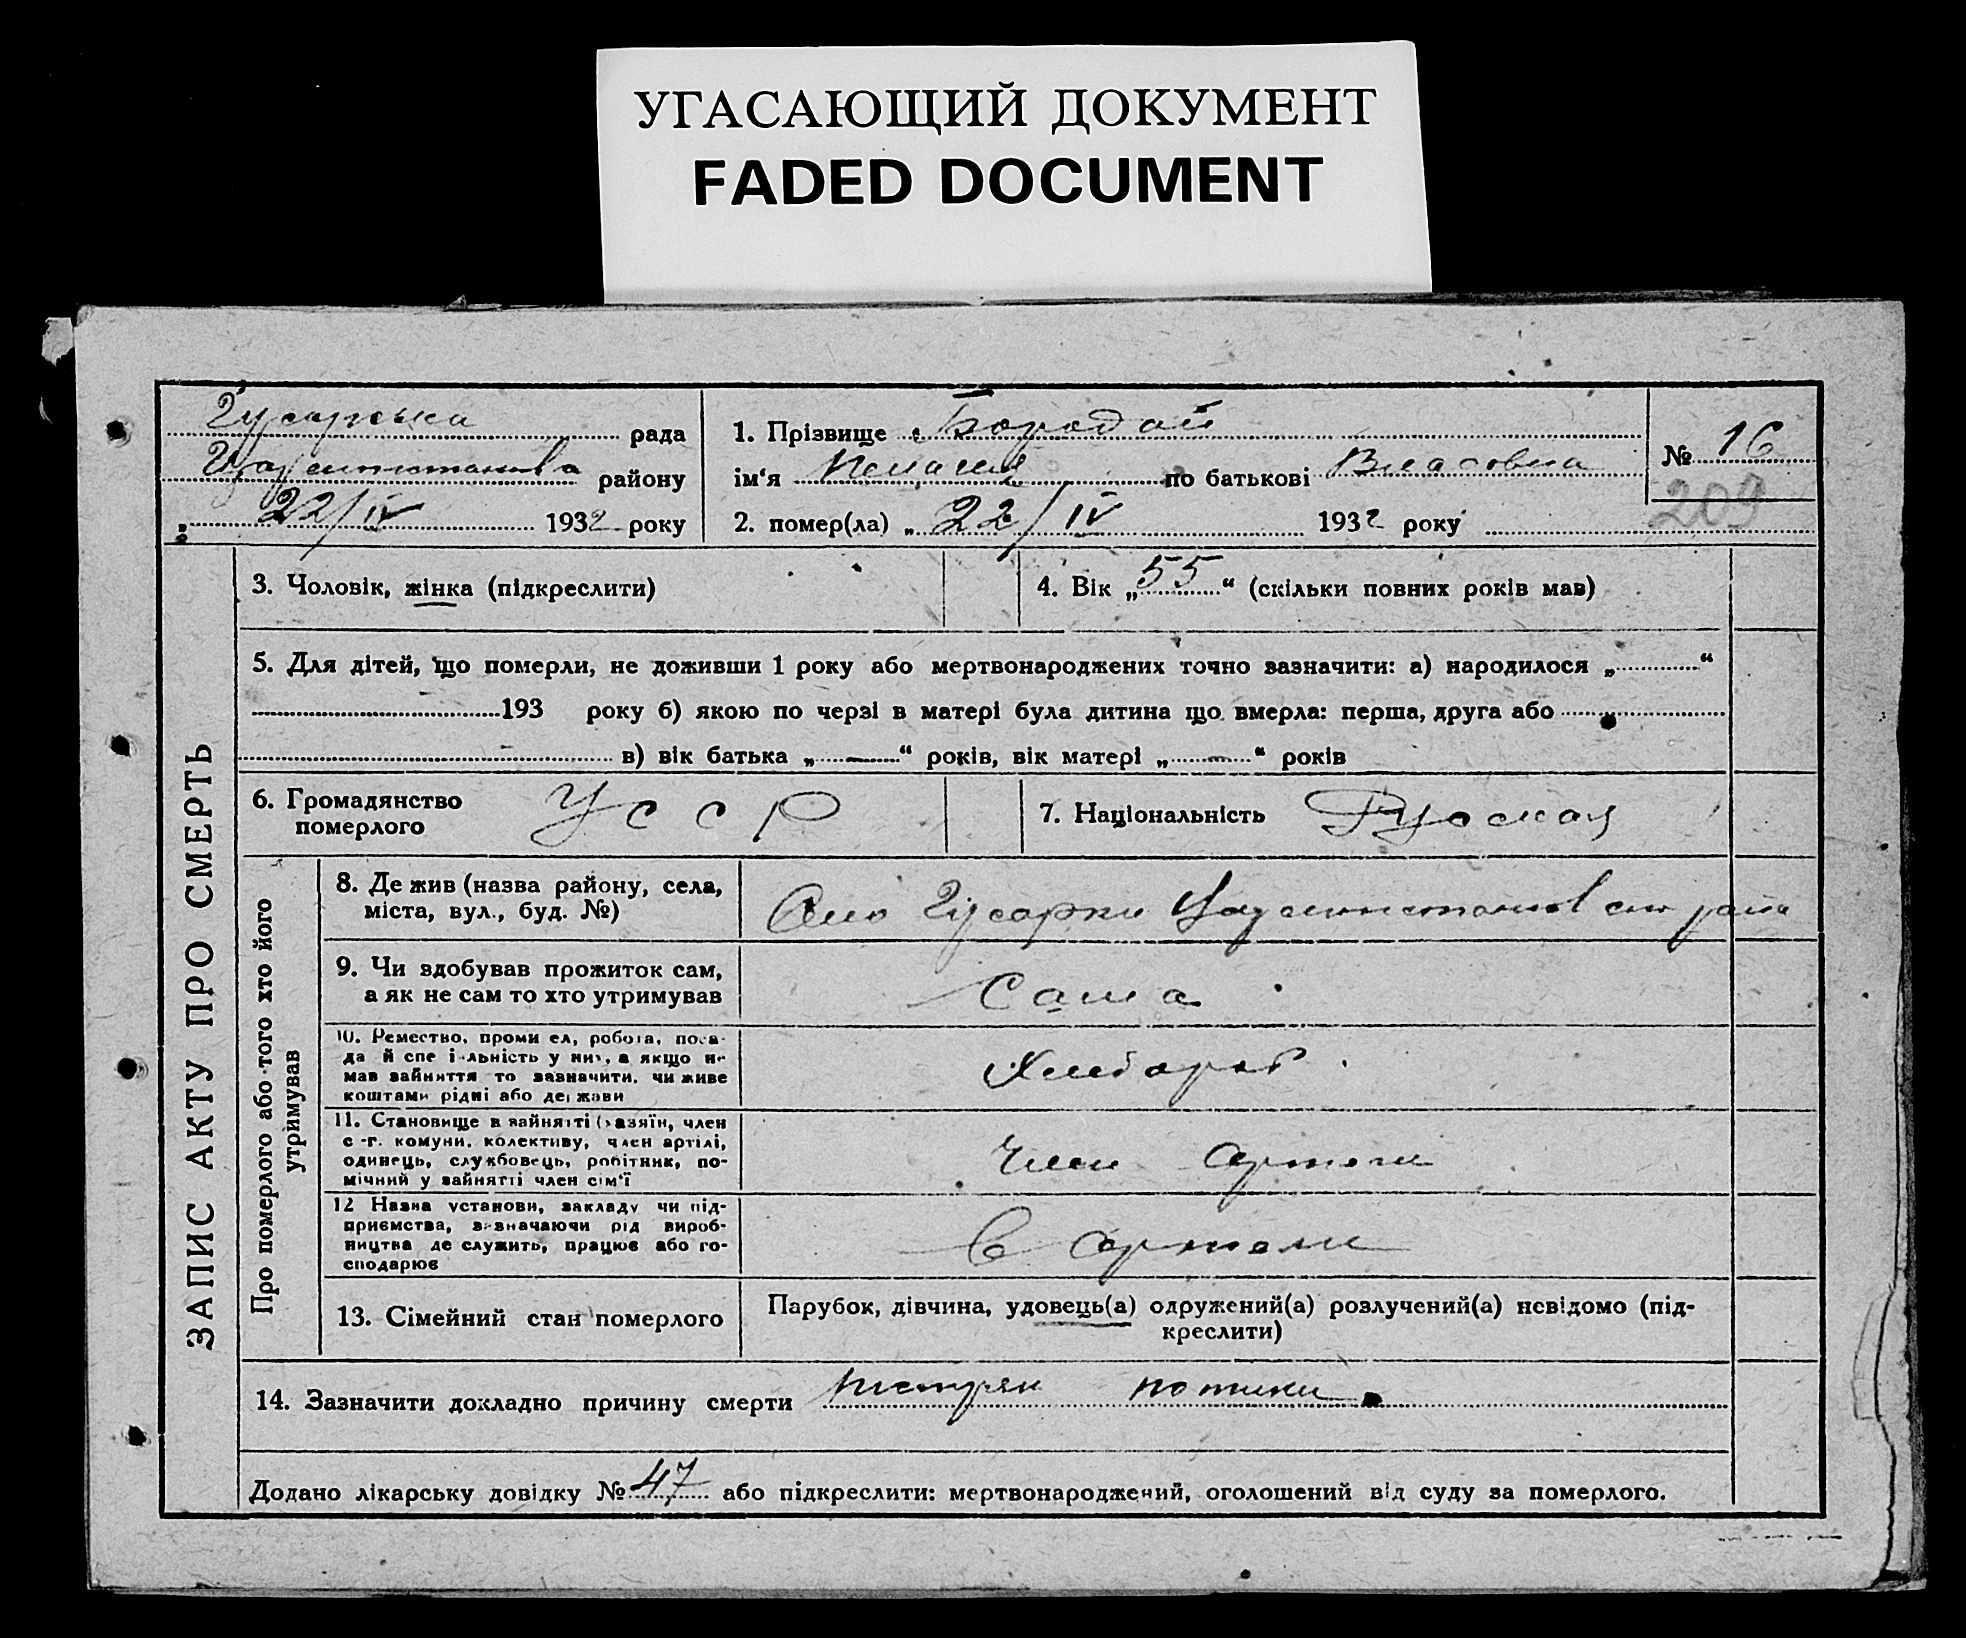 УГАСАЮЩИЙ ДОКУМЕНТ
FADED DOCUMENT
Гусарська рада
району
22/IV 1932 року
1. Прізвище Бородай
ім‘я по батькові Власовна
2. помер(ла) „ 22/IV 1932 року
№ 16
209
ЗАПИС АКТУ ПРО СМЕРТЬ
3. Чоловік, жінка (підкреслити)
4. Вік „55“ (скільки повних років мав)
5. Для дітей, що померли, не доживши 1 року або мертвонароджених точно зазначити: а) народилося „ “
193 року б) якою по черзі в матері була дитина що вмерла: перша, друга або
в) вік батька „—“ років, вік матері „—“ років
6. Громадянство
померлого
УССР
7. Національність Русская
Про померлого або того хто його
утримував
8. Де жив (назва району, села,
міста, вул., буд. №)
Село Гусарки
9. Чи здобував прожиток сам,
а як не сам то хто утримував
Сама
10. Ремество, проми ел, робота, поса-
да й спе і льність у них, а якщо не
мав зайняття то зазначити, чи живе
коштами рідні або держави
Хлебороб
11. Становище в зайнятті (хазяїн, член
с-г. комуни, колективу, член артілі,
одинець, службовець, робітник, по-
мічний у зайнятті член сім‘ї
Член артели
12 Назва установи, закладу чи під-
приємства, зазначаючи рід вироб-
ництва де служить, працює або го-
сподарює
В артели
13. Сімейний стан померлого
Парубок, дівчина, удовець(а) одружений(а) розлучений(а) невідомо (під-
креслити)
14. Зазначити докладно причину смерти
Додано лікарську довідку № 47 або підкреслити: мертвонароджений, оголошений від суду за померлого.